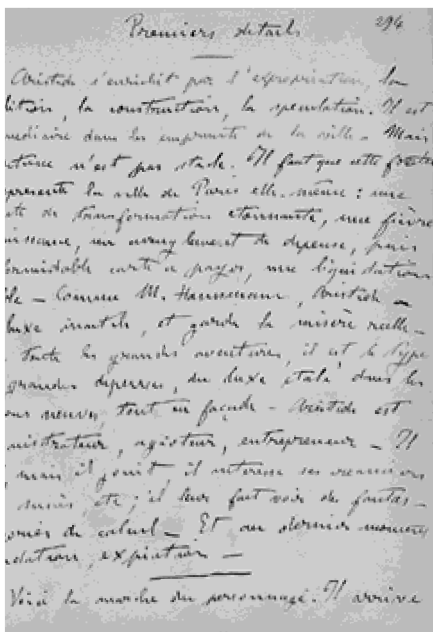 Premiers détails 294
Aristide s'enrichit par l'expropriation, la
lition, la construction, la spéculation. Il est
médiaire dans les emprunts de la ville. Mais
n'est pas stable. Il faut que cette
présente la ville de Paris elle-même : une
de transformation étonnante, une fièvre
issance, un aveuglement de dépense, puis
formidable carte à payer, une liquidation
ble — Comme M. Haussmann, Aristide
luxe inutile, et garde la misère réelle —
toute les grandes aventures, il est le type
grandes dépenses, du luxe étalé dans les
neuves, tout en façade — Aristide est
nistrateur, agioteur, entrepreneur — Il
mais il jouit, il intéresse ses créanciers
succès etc ; il leur fait voir des fantas-
de calcul — Et au dernier moment
dation, expiation —
Voici la marche du personnage. Il arrive